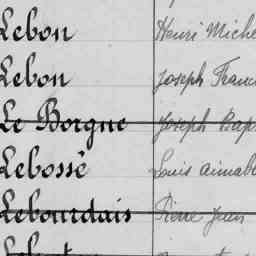 Lebon Henri Miche
Lebon Joseph Franc
Le Borgne Joseph Bap
Lebossé Louis aimab
Lebourdais Pierre Jean